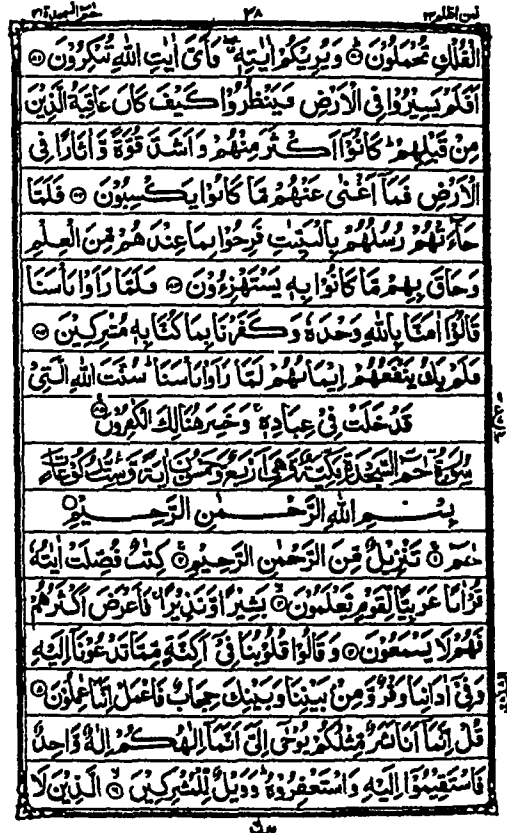 فمن اظلم ٢٤ ٢٨ حٰمٓ السجدة ٤١
الْفُلْكِ تُحْمَلُوْنَ ۞ وَيُرِيْكُمْ اٰيٰتِهٖ ۖ فَاَىَّ اٰيٰتِ اللّٰهِ تُنْكِرُوْنَ ۞
اَفَلَمْ يَسِيْرُوْا فِى الْاَرْضِ فَيَنْظُرُوْا كَيْفَ كَانَ عَاقِبَةُ الَّذِيْنَ
مِنْ قَبْلِهِمْ ؕ كَانُوْۤا اَكْثَرَ مِنْهُمْ وَاَشَدَّ قُوَّةً وَّاٰثَارًا فِى
الْاَرْضِ فَمَاۤ اَغْنٰى عَنْهُمْ مَّا كَانُوْا يَكْسِبُوْنَ ۞ فَلَمَّا
جَآءَتْهُمْ رُسُلُهُمْ بِالْبَيِّنٰتِ فَرِحُوْا بِمَا عِنْدَهُمْ مِّنَ الْعِلْمِ
وَحَاقَ بِهِمْ مَّا كَانُوْا بِهٖ يَسْتَهْزِءُوْنَ ۞ فَلَمَّا رَاَوْا بَاْسَنَا
قَالُوْۤا اٰمَنَّا بِاللّٰهِ وَحْدَهٗ وَكَفَرْنَا بِمَا كُنَّا بِهٖ مُشْرِكِيْنَ ۞
فَلَمْ يَكُ يَنْفَعُهُمْ اِيْمَانُهُمْ لَمَّا رَاَوْا بَاْسَنَا ؕ سُنَّتَ اللّٰهِ الَّتِىْ
قَدْ خَلَتْ فِىْ عِبَادِهٖ ۚ وَخَسِرَ هُنَالِكَ الْكٰفِرُوْنَ ۞
سُوْرَةُ حٰمٓ السَّجْدَةِ مَكِّيَّةٌ وَّهِىَ اَرْبَعٌ وَّخَمْسُوْنَ اٰيَةً وَّسِتُّ رُكُوْعَاتٍ
بِسْمِ اللّٰهِ الرَّحْمٰنِ الرَّحِيْمِ
حٰمٓ ۞ تَنْزِيْلٌ مِّنَ الرَّحْمٰنِ الرَّحِيْمِ ۞ كِتٰبٌ فُصِّلَتْ اٰيٰتُهٗ
قُرْاٰنًا عَرَبِيًّا لِّقَوْمٍ يَّعْلَمُوْنَ ۞ بَشِيْرًا وَّنَذِيْرًا ۚ فَاَعْرَضَ اَكْثَرُهُمْ
فَهُمْ لَا يَسْمَعُوْنَ ۞ وَقَالُوْا قُلُوْبُنَا فِىْۤ اَكِنَّةٍ مِّمَّا تَدْعُوْنَاۤ اِلَيْهِ
وَفِىْۤ اٰذَانِنَا وَقْرٌ وَّمِنْۢ بَيْنِنَا وَبَيْنِكَ حِجَابٌ فَاعْمَلْ اِنَّنَا عٰمِلُوْنَ ۞
قُلْ اِنَّمَاۤ اَنَا بَشَرٌ مِّثْلُكُمْ يُوْحٰىۤ اِلَىَّ اَنَّمَاۤ اِلٰهُكُمْ اِلٰهٌ وَّاحِدٌ
فَاسْتَقِيْمُوْۤا اِلَيْهِ وَاسْتَغْفِرُوْهُ ؕ وَوَيْلٌ لِّلْمُشْرِكِيْنَ ۞ الَّذِيْنَ لَا